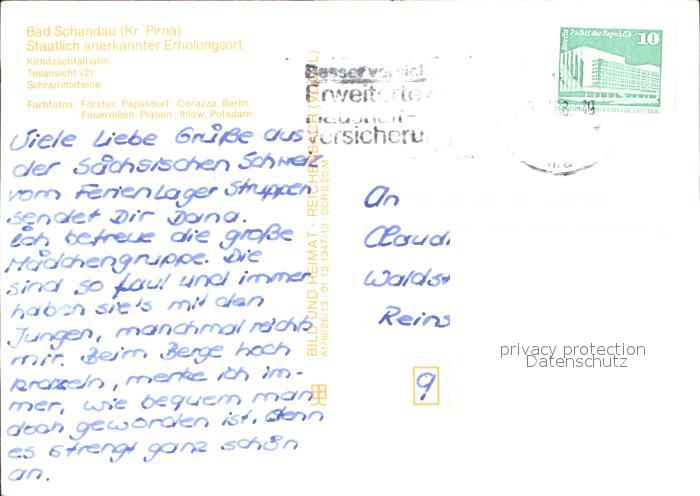 Bad Schandau (Kr. Pirna)
Staatlich anerkannter Erholungsort
Kirnitzschtalbahn
Teilansicht (2)
Schrammsteine
Farbfotos: Förster, Papstdorf; Corazza, Berlin
Feuereißen, Plauen; Ihlow, Potsdam
Viele Liebe Grüße aus
der Sächsischen Schweiz
vom Ferienlager Struppen
sendet Dir Dana.
Ich betreue die große
Mädchengruppe. Die
sind so faul und immer
haben sie's mit den
Jungen, manchmal reichts
mir. Beim Berge hoch
kraxeln, merke ich im-
mer, wie bequem man
doch geworden ist, denn
es strengt ganz schön
an.
BILD UND HEIMAT · REICHENBACH (VOGTL)
A1/III/26/13 · 01 12 1347/13 · DDR 0,20 M
Erweiterte
Haushalt-
versicheru
Berlin Palast der Republik
10
An
Claudi
Waldst
Reins
9
privacy protection
Datenschutz